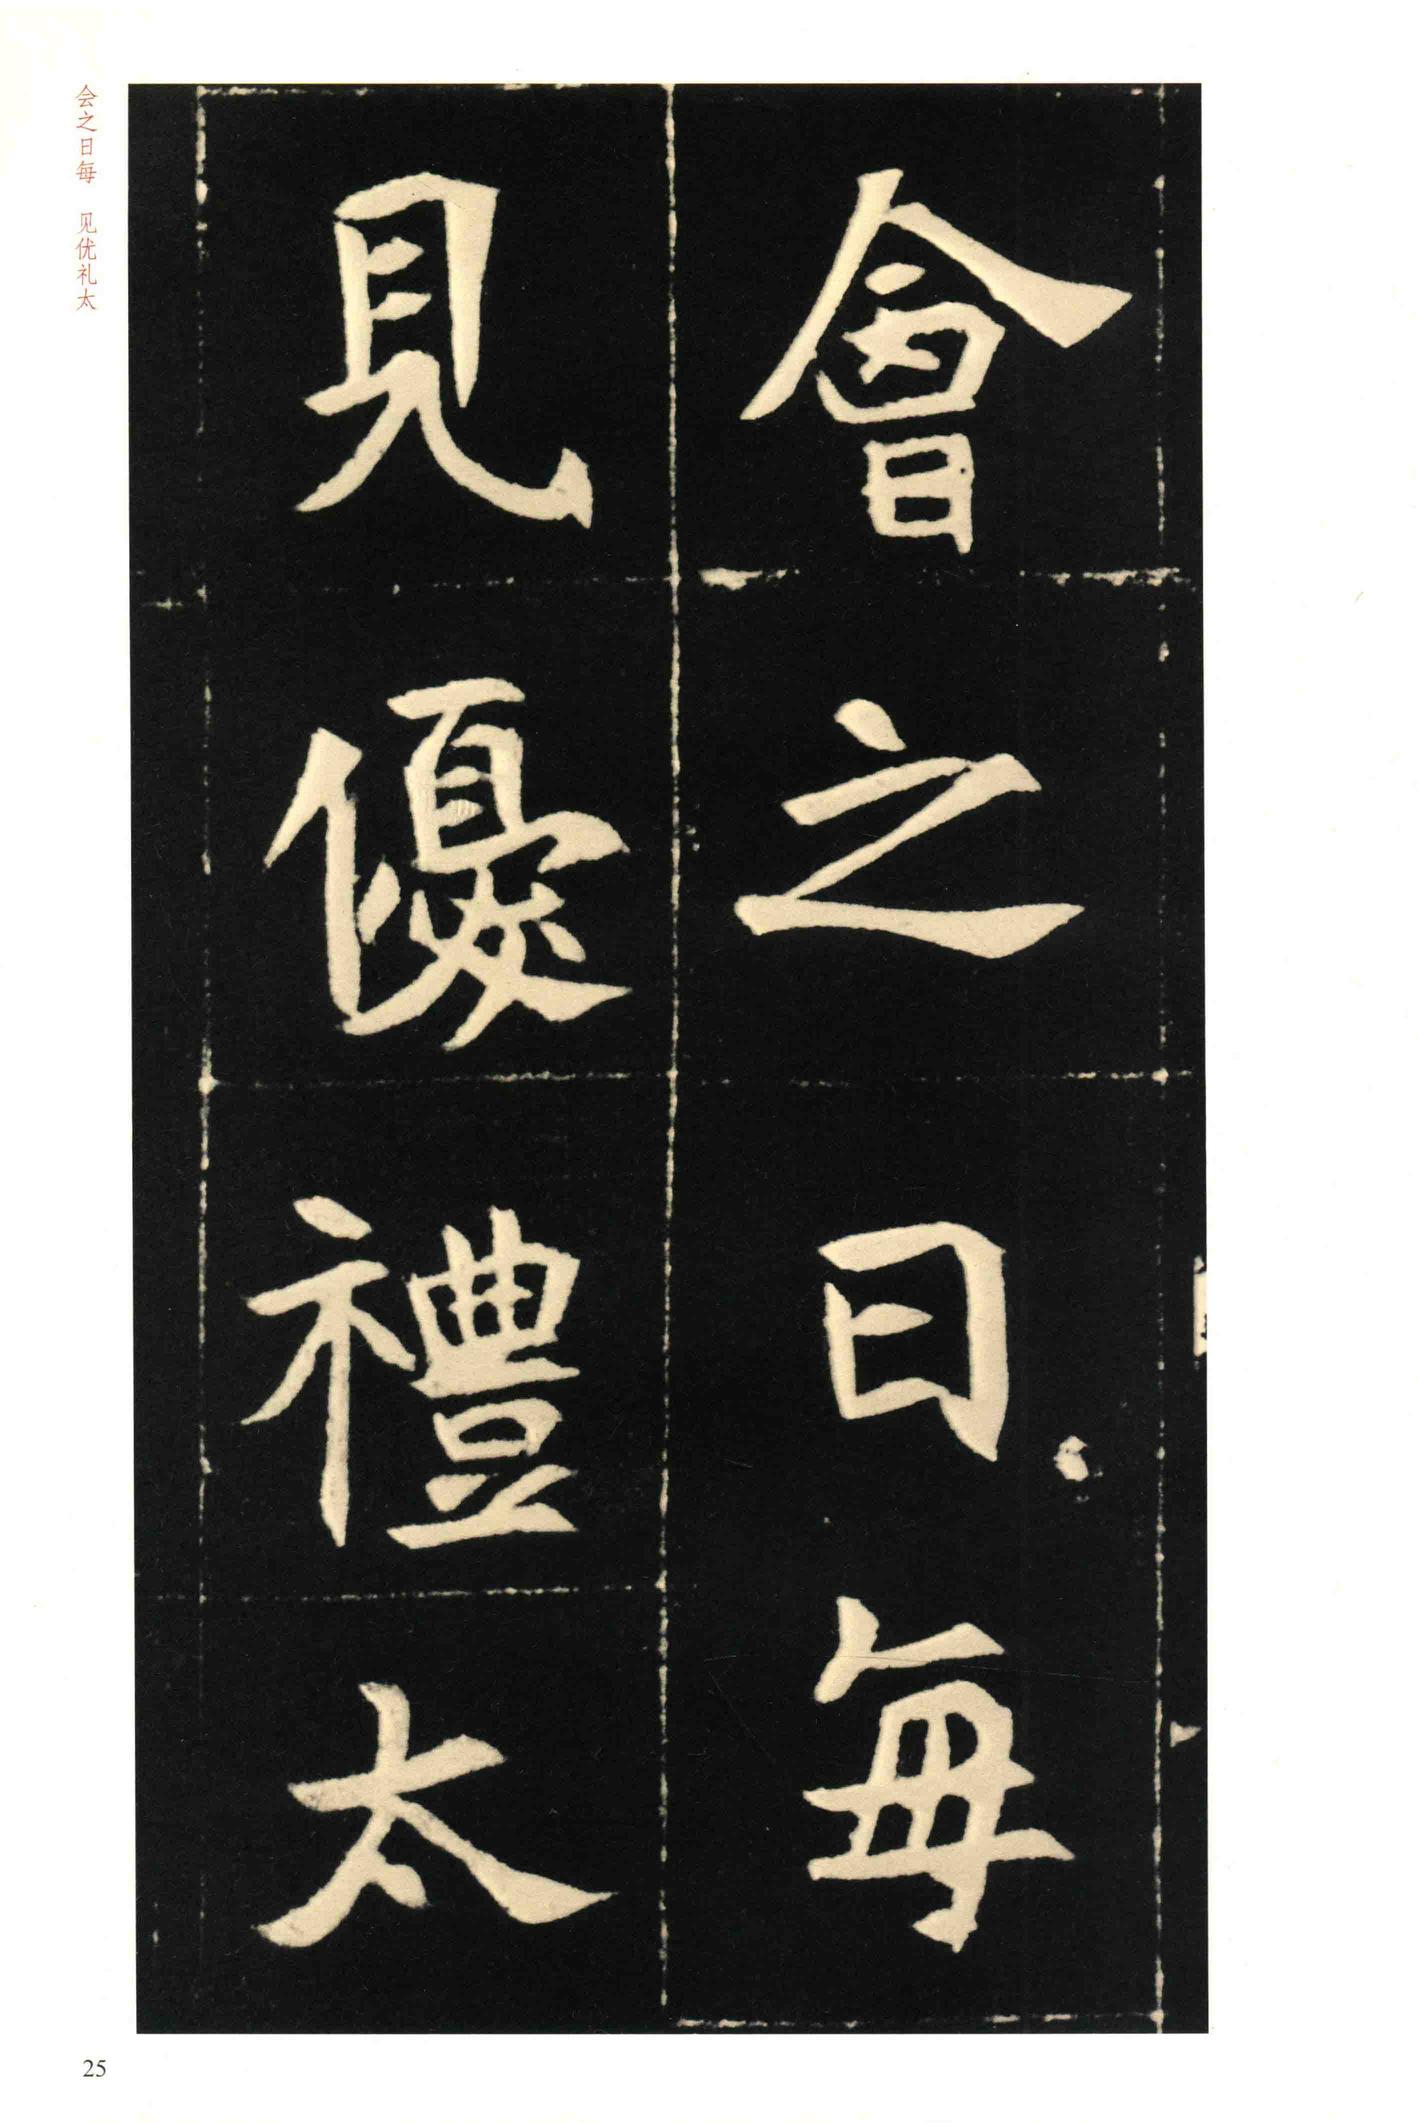 會之日每
見優禮太
会之日每 见优礼太
25